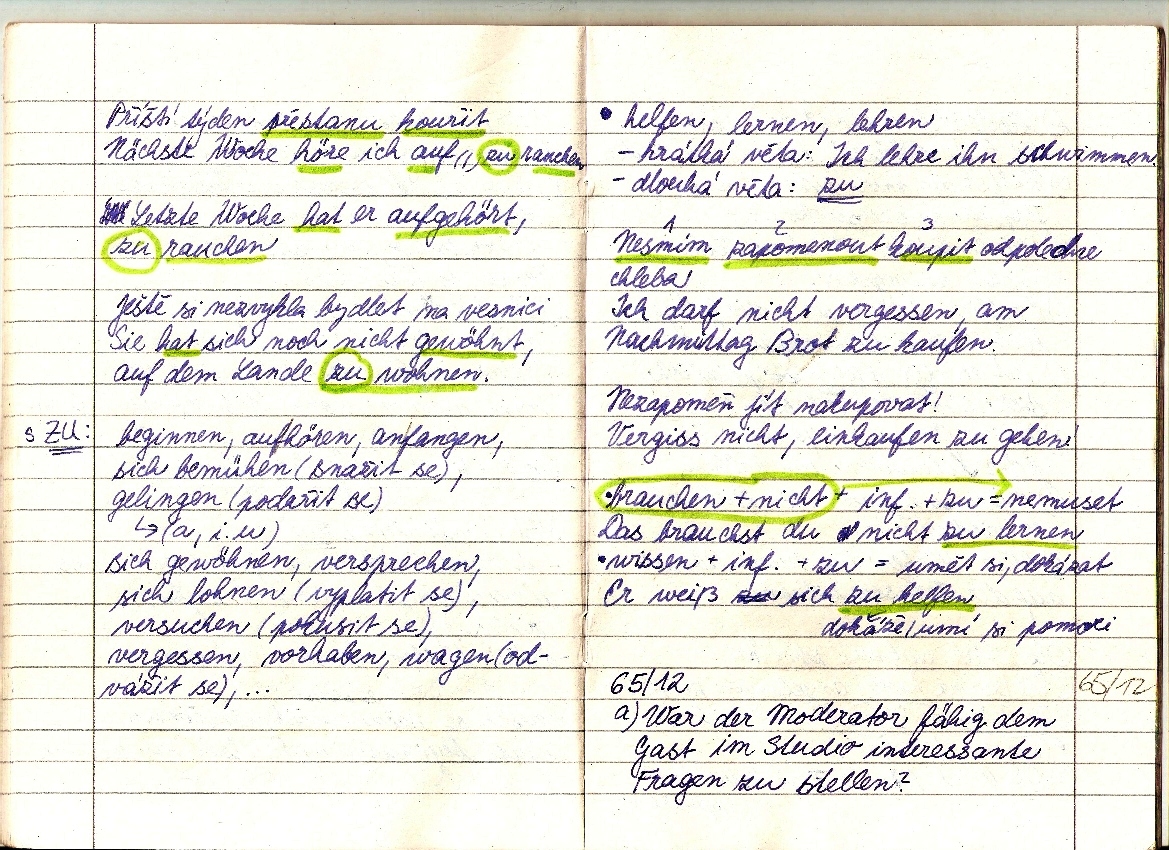 Příští týden přestanu kouřit
Nächste Woche höre ich auf(,) zu rauchen
Letzte Woche hat er aufgehört,
zu rauchen
Ještě si nezvykla bydlet na vesnici
Sie hat sich noch nicht gewöhnt,
auf dem Lande zu wohnen.
s ZU:
beginnen, aufhören, anfangen,
sich bemühen (snažit se),
gelingen (podařit se)
↳ (a, i. u)
sich gewöhnen, versprechen,
sich lohnen (vyplatit se),
versuchen (pokusit se),
vergessen, vorhaben, wagen (od-
vážit se), ...
• helfen, lernen, lehren
- krátká věta: Ich lehre ihn schwimmen.
- dlouhá věta: zu
1 2 3
Nesmím zapomenout koupit odpoledne
chleba!
Ich darf nicht vergessen, am
Nachmittag Brot zu kaufen.
Nezapomeň jít nakupovat!
Vergiss nicht, einkaufen zu gehen!
• brauchen + nicht + inf. + zu = nemuset
Das brauchst du nicht zu lernen
• wissen + inf. + zu = umět si, dokázat
Er weiß sich zu helfen
dokáže/umí si pomoci
65/12
65/12
a) War der Moderator fähig dem
Gast im Studio interessante
Fragen zu stellen?